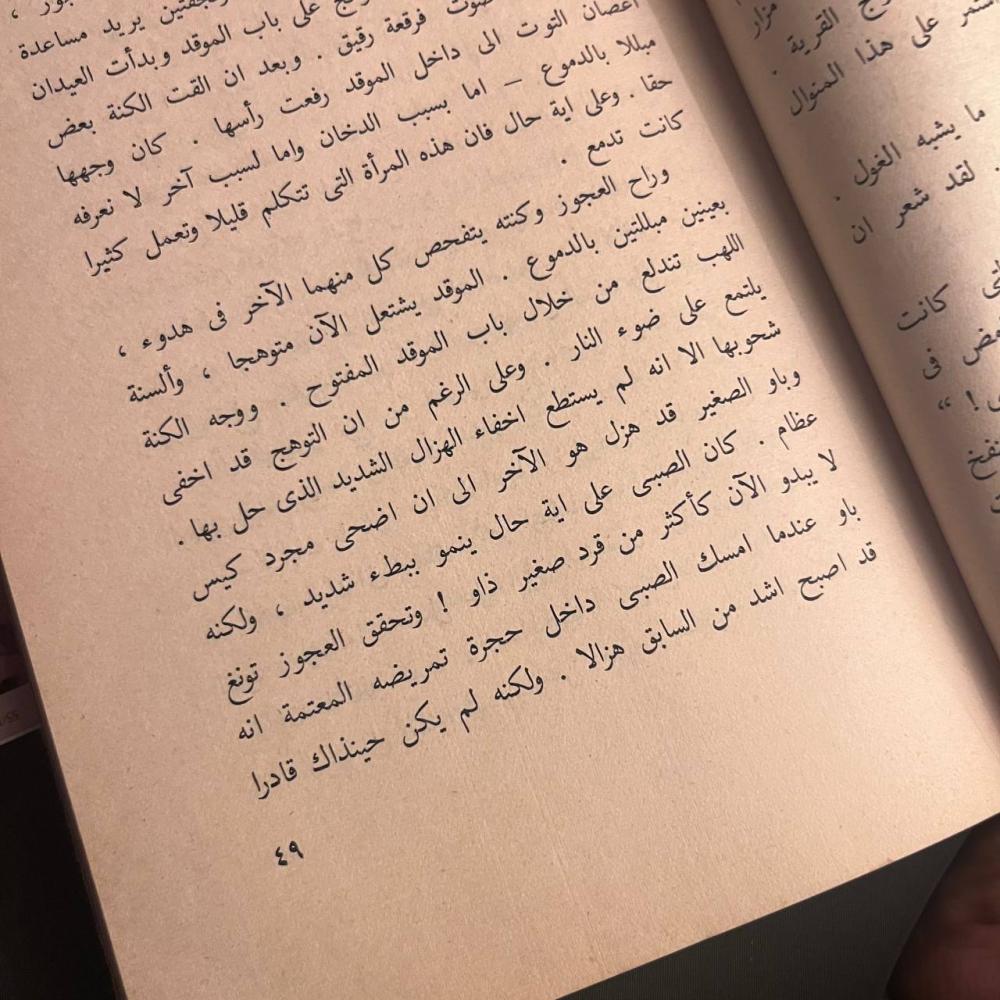 يريد مساعدة
على باب الموقد وبدأت العيدان
فرقعة رقيق . وبعد ان القت الكنة بعض
اغصان التوت الى داخل الموقد رفعت رأسها . كان وجهها
مبللا بالدموع – اما بسبب الدخان واما لسبب آخر لا نعرفه
حقا . وعلى اية حال فان هذه المرأة التى تتكلم قليلا وتعمل كثيرا
كانت تدمع .
وراح العجوز وكنته يتفحص كل منهما الآخر فى هدوء ،
بعينين مبللتين بالدموع . الموقد يشتعل الآن متوهجا ، وألسنة
اللهب تندلع من خلال باب الموقد المفتوح . ووجه الكنة
يلتمع على ضوء النار . وعلى الرغم من ان التوهج قد اخفى
شحوبها الا انه لم يستطع اخفاء الهزال الشديد الذى حل بها .
وباو الصغير قد هزل هو الآخر الى ان اضحى مجرد كيس
عظام . كان الصبى على اية حال ينمو ببطء شديد ، ولكنه
لا يبدو الآن كأكثر من قرد صغير ذاو ! وتحقق العجوز تونغ
باو عندما امسك الصبى داخل حجرة تمريضه المعتمة انه
قد اصبح اشد من السابق هزالا . ولكنه لم يكن حينذاك قادرا
٤٩
مزار
القرية .
على هذا المنوال
ما يشبه الغول .
. لقد شعر ان
كانت
فى